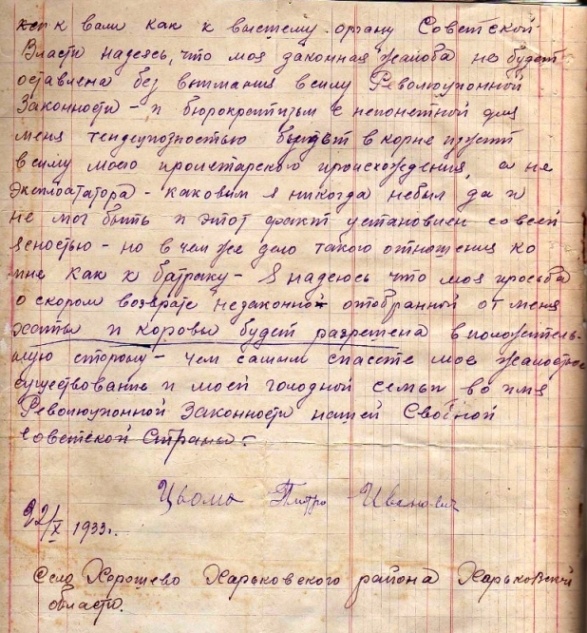 к вам как к высшему органу Советской
Власти надеясь, что моя законная жалоба не будет
оставлена без внимания всилу Революционной
Законности - и бюрократизм с непонетной для
меня тенденциозностью будет в корне изжит
всилу моего пролетарского происхождения, а не
Эксплоататора - каковым я никогда небыл да и
не мог быть и этот факт установлен со всей
ясностью - но в чем же дело такого отношения ко
мне как к батраку - Я надеюсь что моя просьба
о скором возврате незаконно отобранной от меня
хаты и коровы будет разрешена в положитель-
ную сторону - чем самим спасете мое жалостное
существование и моей голодной семьи во имя
Революционной Законности нашей Свобной
советской Страны -
Цьома Питро Иванович
22/X 1933г.
Село Хорошево Харьковского района Харьковской
области.